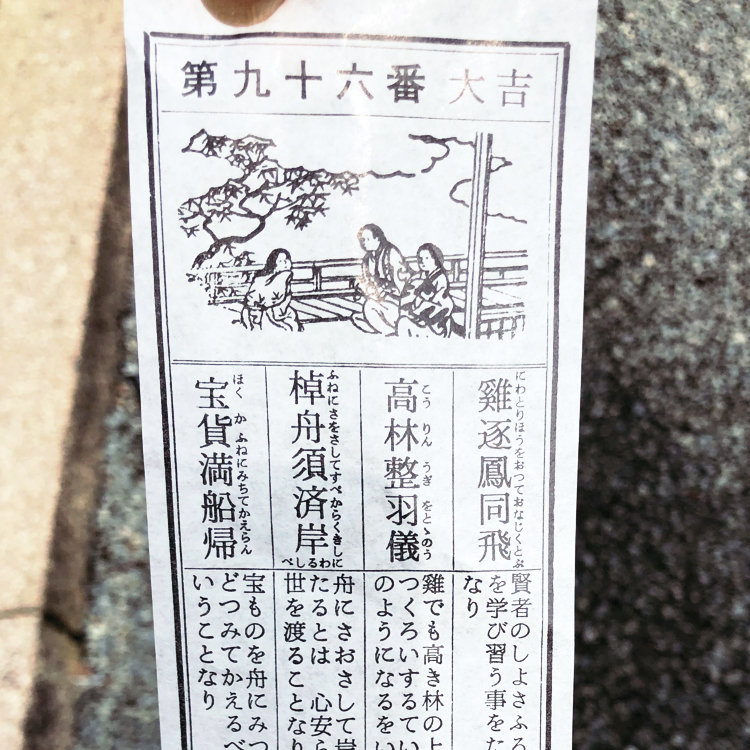 第九十六番 大吉
にわとりほうをおつておなじくとぶ
雞逐鳳同飛
こうりんうぎをとゝのう
高林整羽儀
ふねにさをさしてすべからくきしにわるしべ
棹舟須済岸
ほくかふねにみちてかえらん
宝貨満船帰
賢者のしよさふる
を学び習う事をた
なり
雞でも高き林の上
つくろいするてい
のようになるをい
舟にさおさして
たるとは 心安ら
世を渡ることなり
宝ものを舟にみつ
どつみてかえるべ
いうことなり